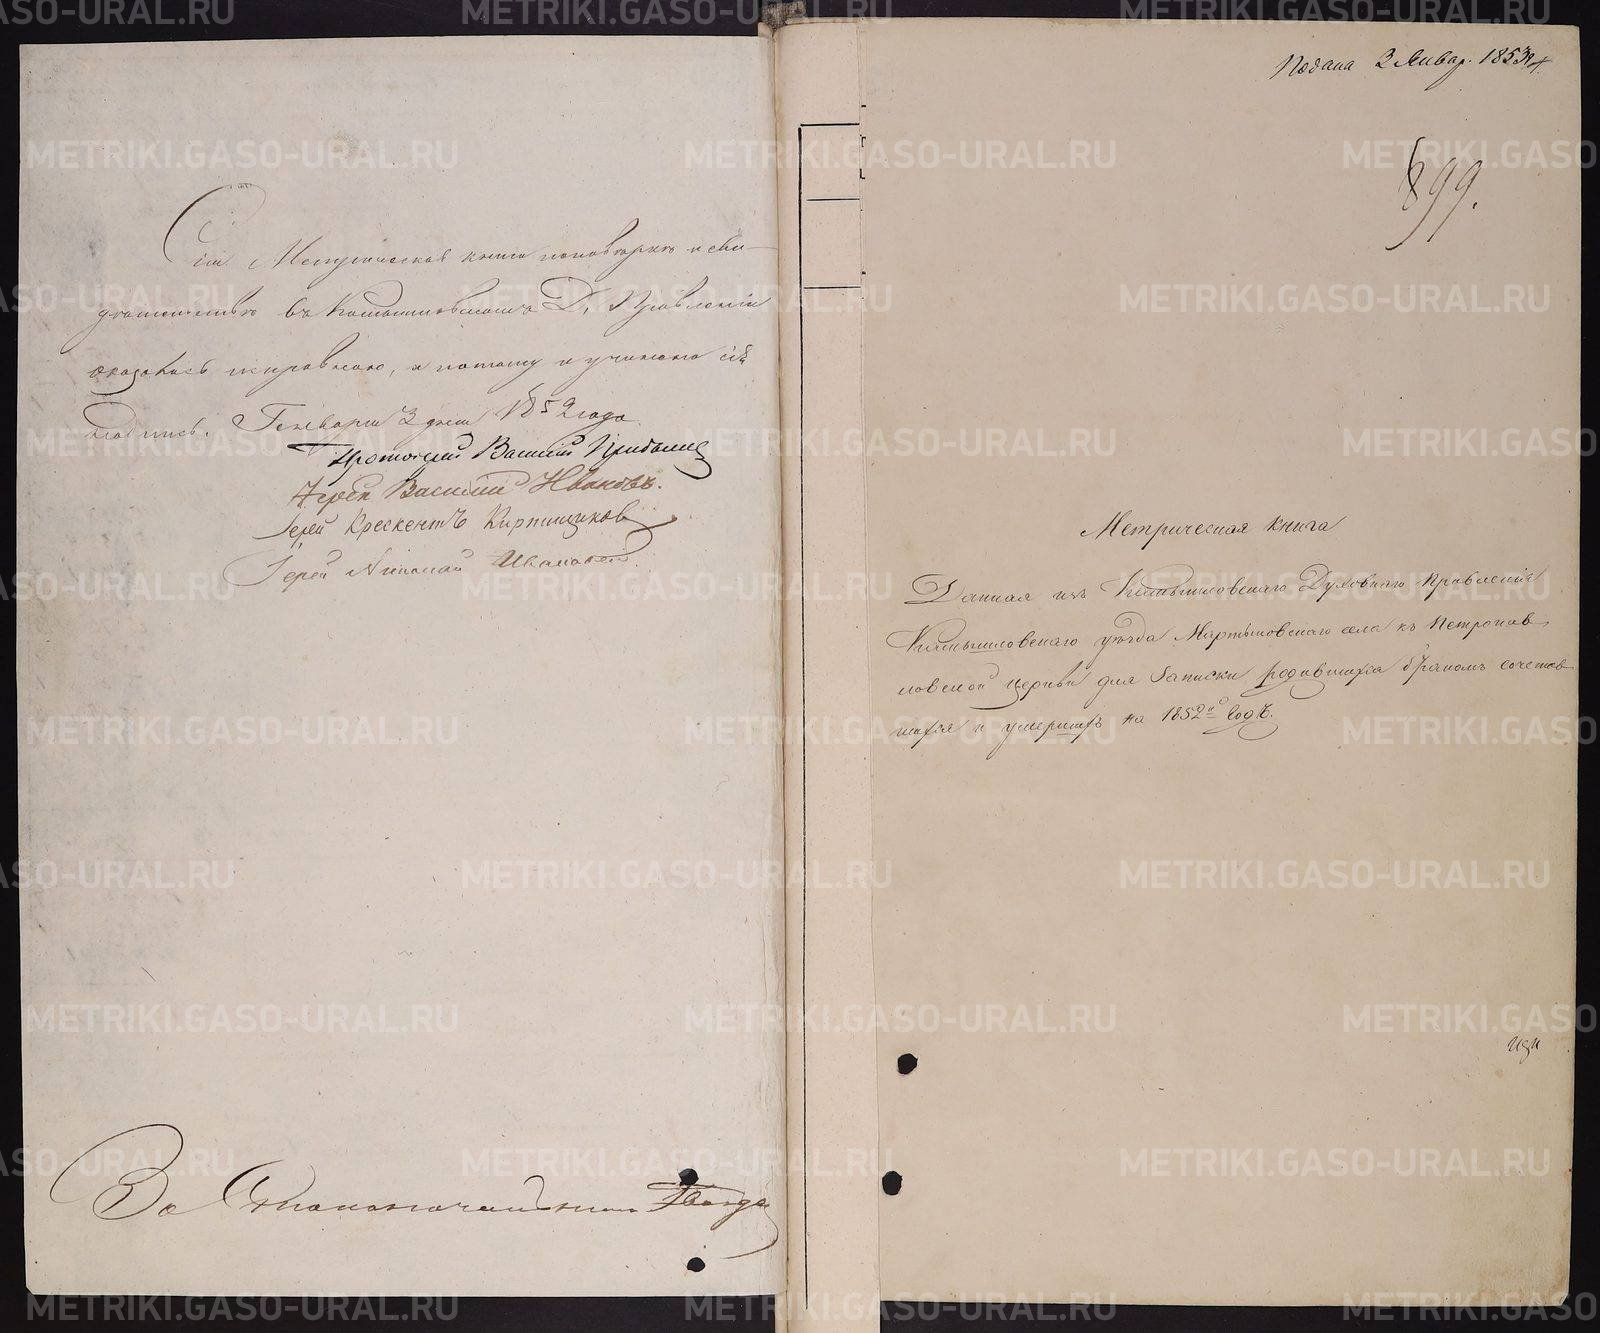 Сія Метрическая книга по повѣркѣ и сви-
дѣтельству въ Камышловскомъ Д. Правленіи
оказалась исправною, а потому и учинена сія
надпись. Генваря 3 дня 1852 года
Протоіерей Василій
Іерей Василій Ивановъ.
Іерей Крескентъ Кирпищиковъ
Іерей Николай
За Столоначальника
Подана 3 Январ. 1853 г.
899.
Метрическая книга
Данная изъ Камышловскаго Духовнаго Правленія
Камышловскаго уѣзда Мартыновскаго села къ Петропав
ловской церкви для записки родившихся бракомъ сочетав
шихся и умершихъ на 1852й годъ.
METRIKI.GASO-URAL.RU